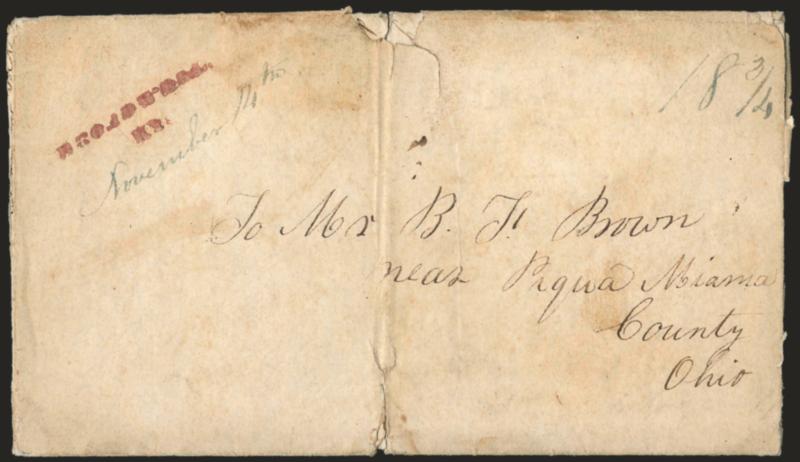 November 14th
18 3/4
To Mr B. F. Brown
near Piqua Miama
County
Ohio